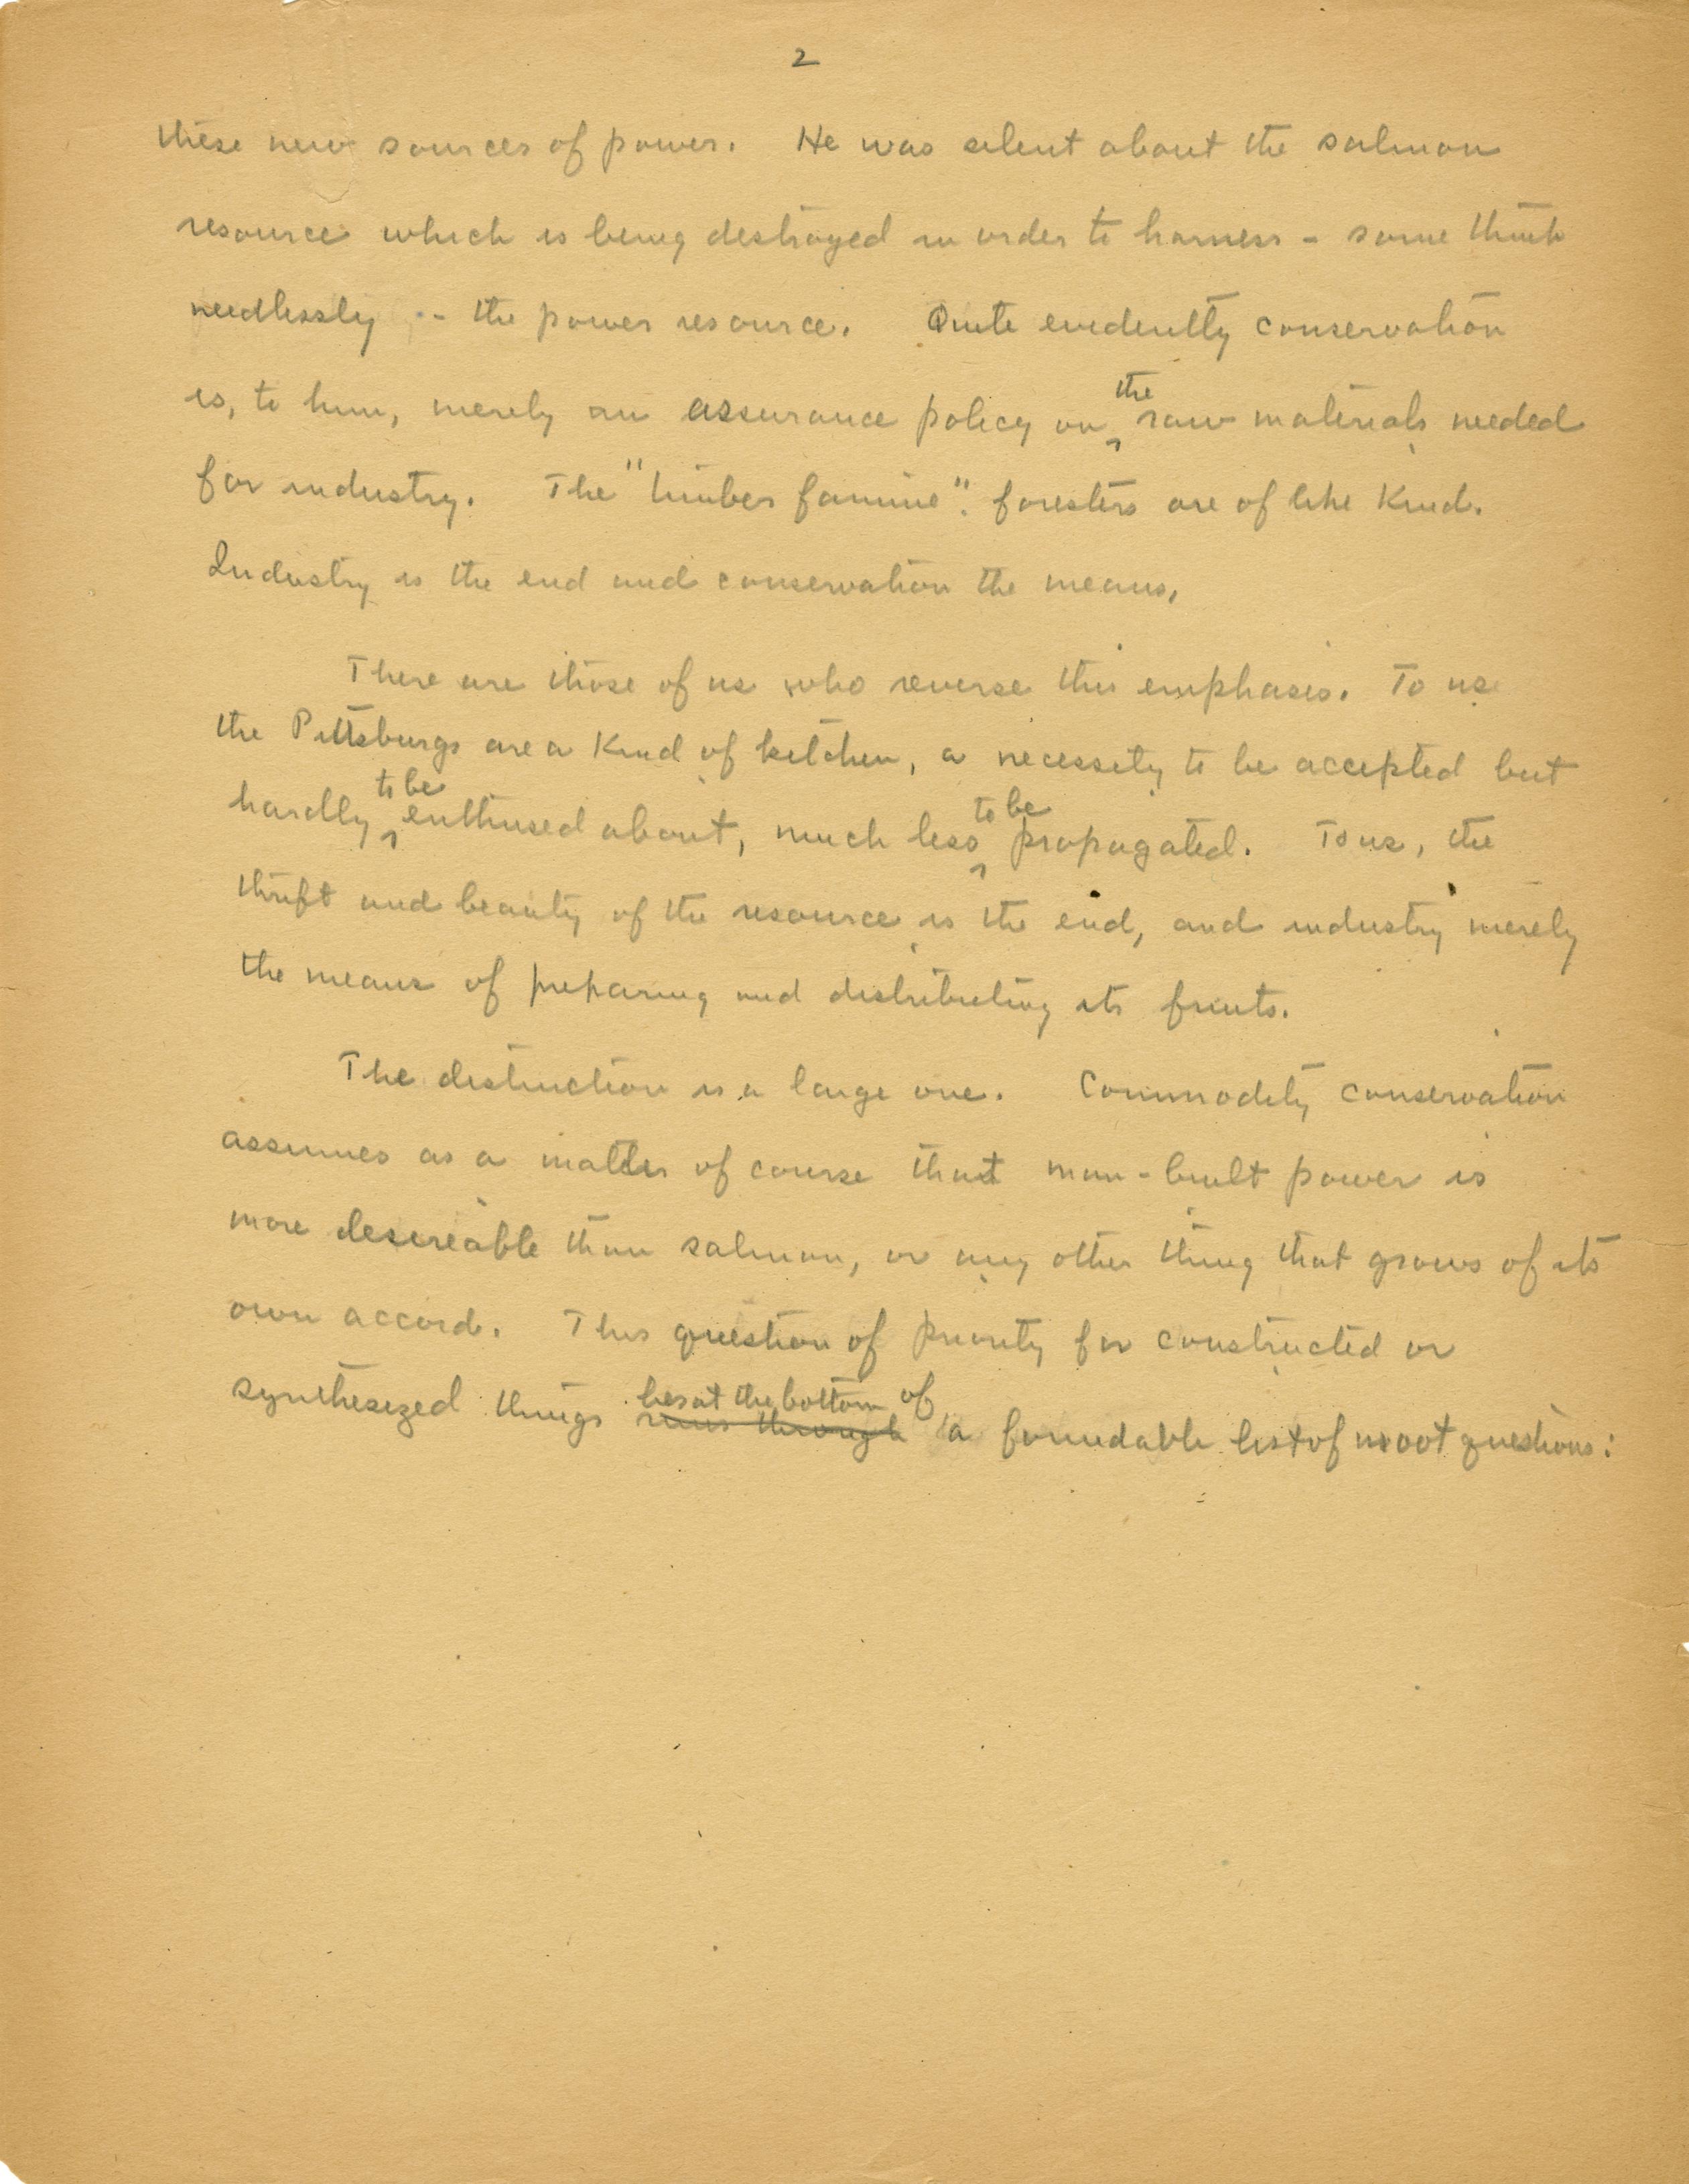 2
these new sources of power. He was silent about the salmon
resource which is being destroyed in order to harness - some think
needlessly -- the power resource. Quite evidently conservation
is, to him, merely an assurance policy on the raw materials needed
for industry. The "timber famine" foresters are of like kind.
Industry is the end and conservation the means.
There are those of us who reverse this emphasis. To us
the Pittsburgs are a kind of kitchen, a necessity to be accepted but
hardly to be enthused about, much less to be propagated. To us, the
thrift and beauty of the resource is the end, and industry merely
the means of preparing and distributing its fruits.
The distinction is a large one. Commodity conservation
assumes as a matter of course that man-built power is
more desireable than salmon, or any other thing that grows of its
own accord. This question of priority for constructed or
synthesized things runs through lies at the bottom of a formidable list of moot questions: